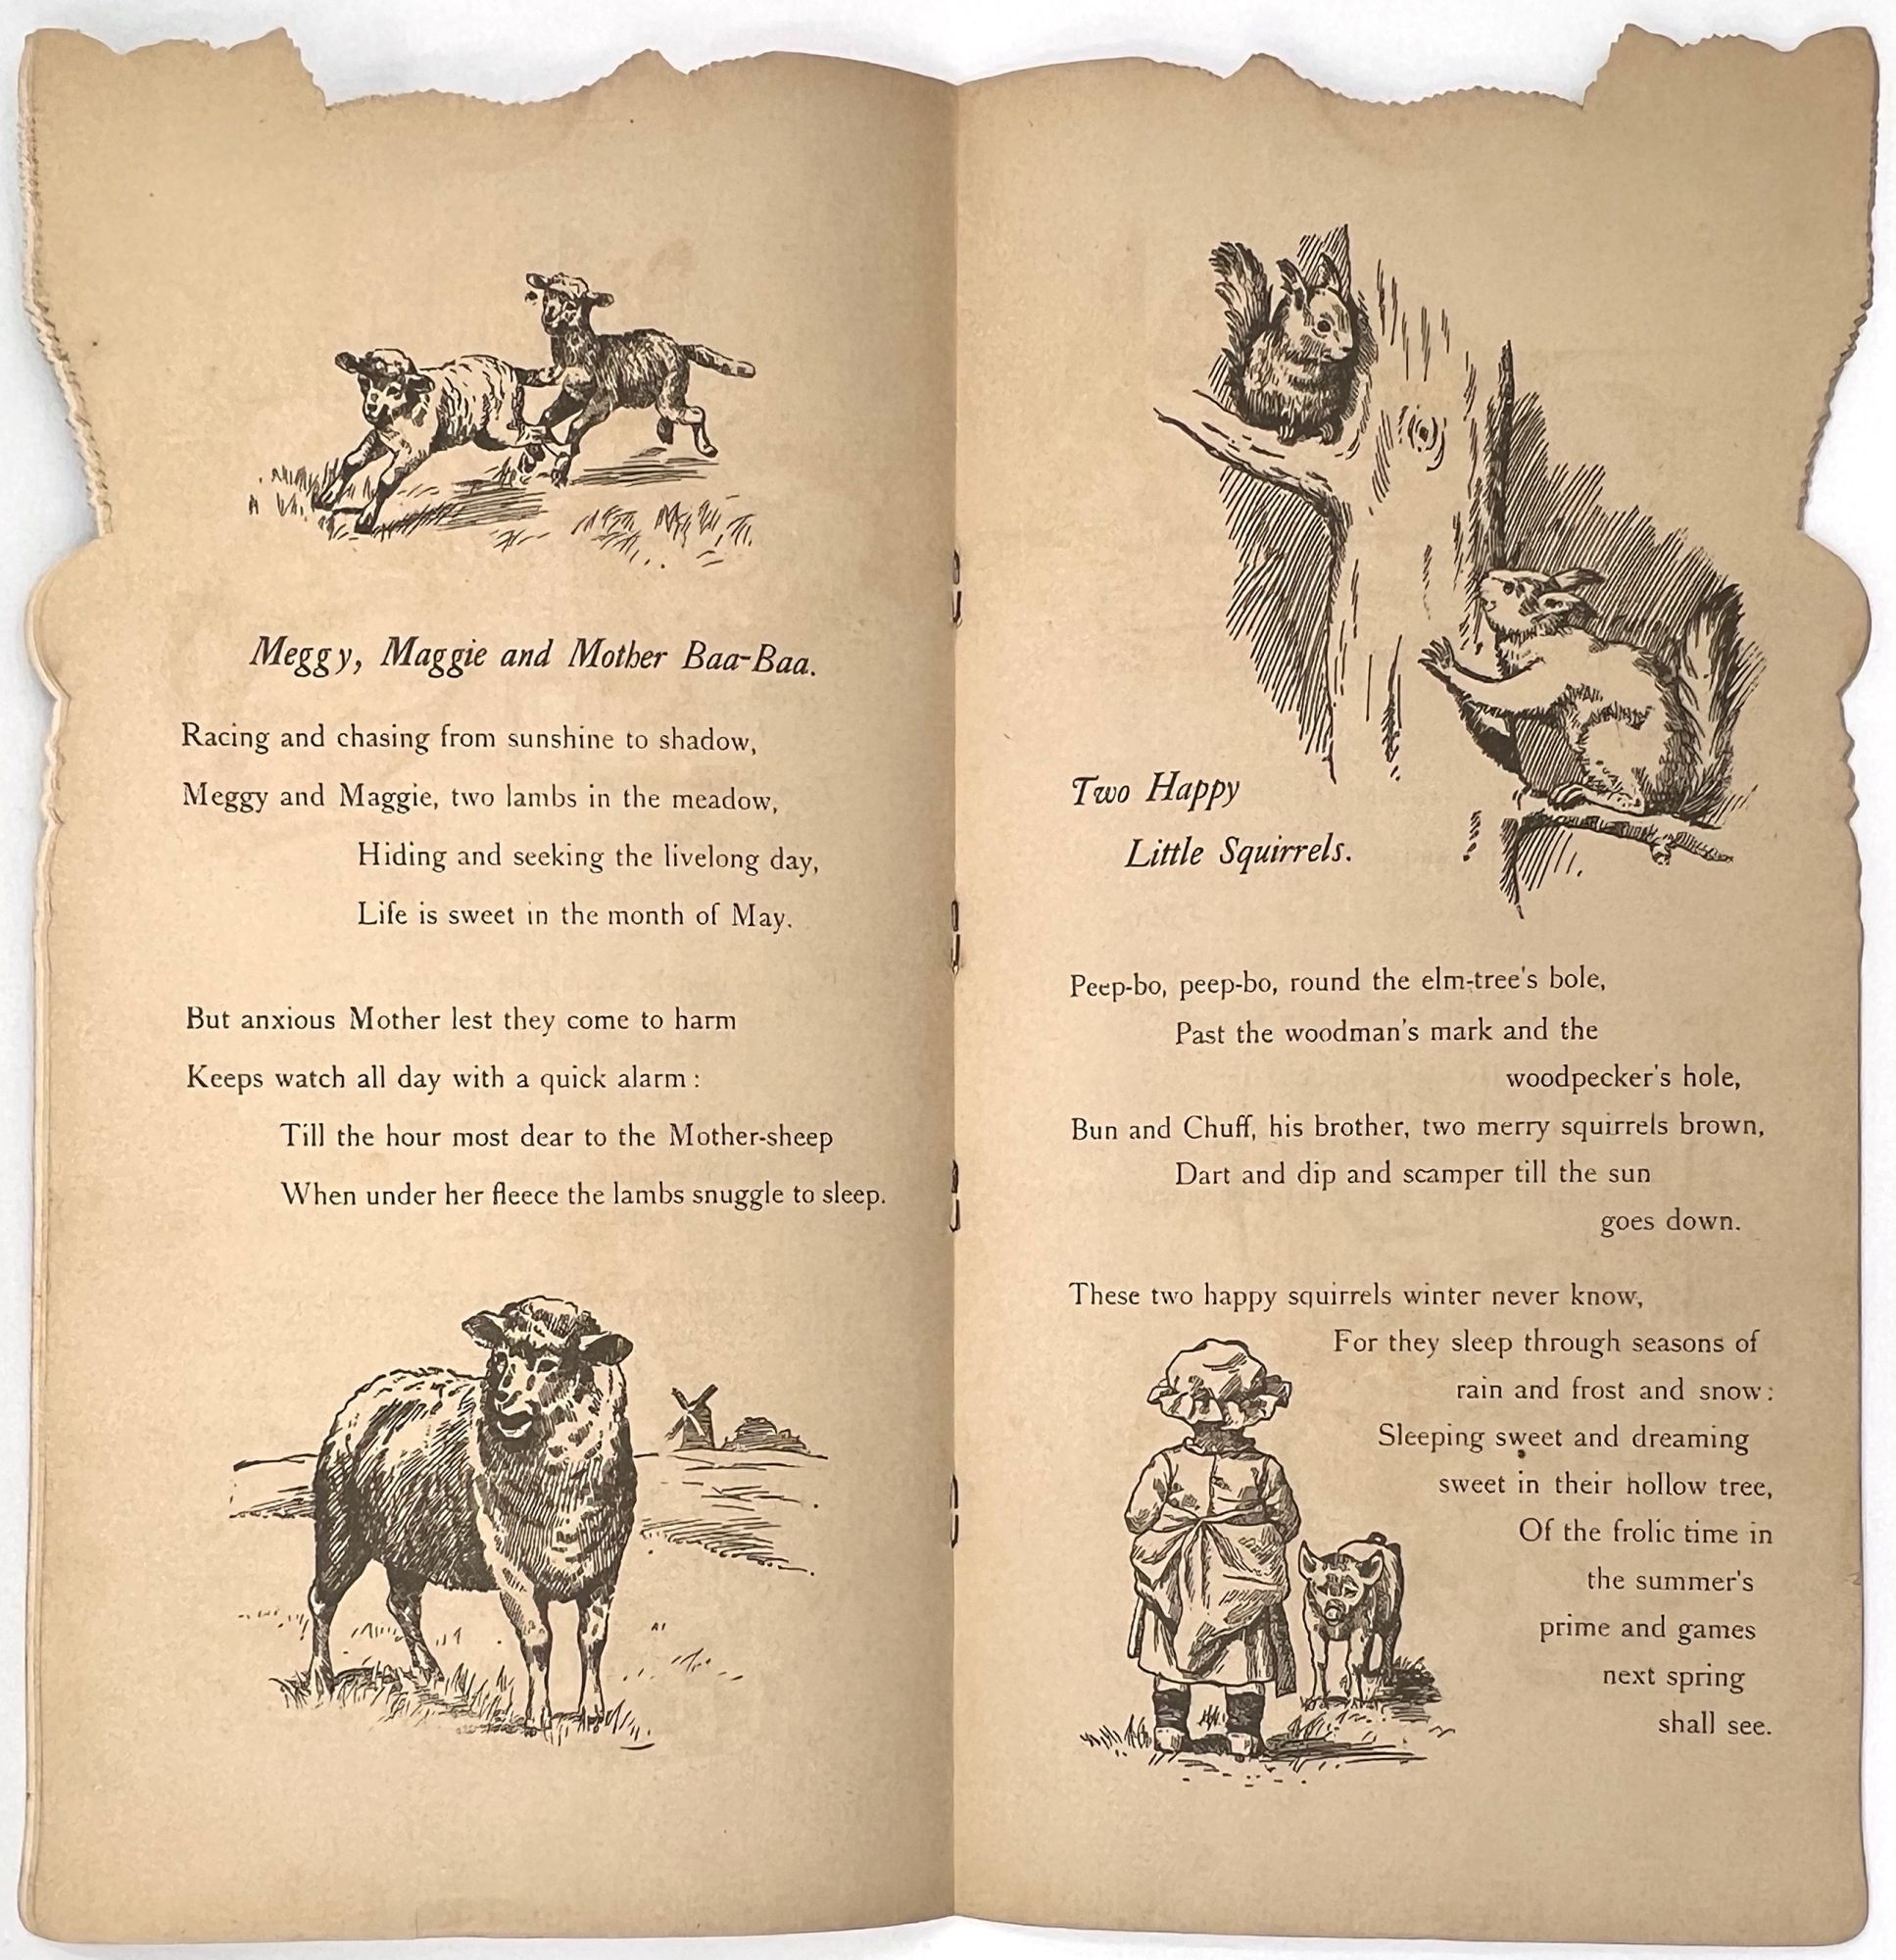 Meggy, Maggie and Mother Baa-Baa.
Racing and chasing from sunshine to shadow,
Meggy and Maggie, two lambs in the meadow,
Hiding and seeking the livelong day,
Life is sweet in the month of May.
But anxious Mother lest they come to harm
Keeps watch all day with a quick alarm :
Till the hour most dear to the Mother-sheep
When under her fleece the lambs snuggle to sleep.
Two Happy
Little Squirrels.
Peep-bo, peep-bo, round the elm-tree's bole,
Past the woodman's mark and the
woodpecker's hole,
Bun and Chuff, his brother, two merry squirrels brown,
Dart and dip and scamper till the sun
goes down.
These two happy squirrels winter never know,
For they sleep through seasons of
rain and frost and snow :
Sleeping sweet and dreaming
sweet in their hollow tree,
Of the frolic time in
the summer's
prime and games
next spring
shall see.